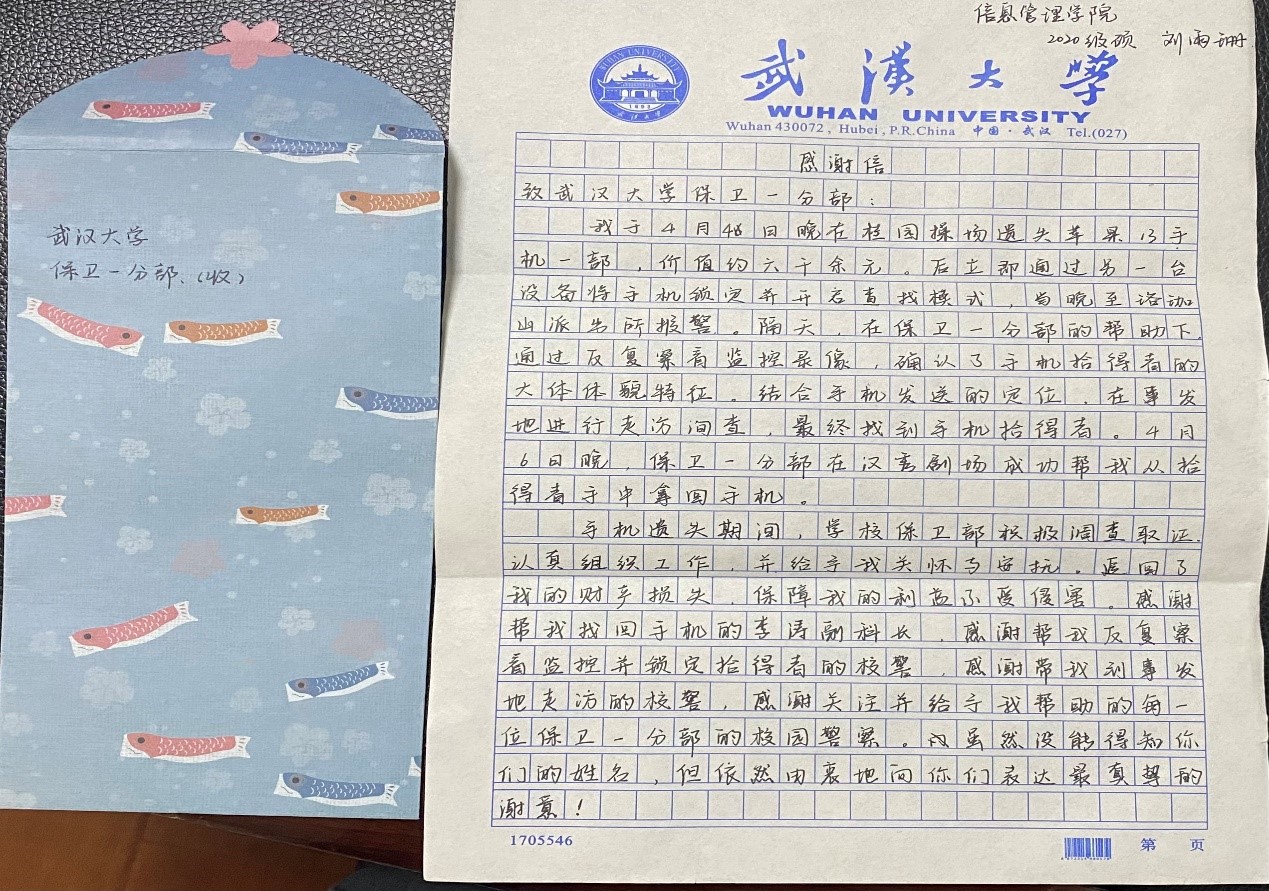 武汉大学
保卫一分部(收)
信息管理学院
2020级硕 刘雨珊
武漢大學
WUHAN UNIVERSITY
Wuhan 430072, Hubei, P.R.China 中国·武汉 Tel.(027)
感谢信
致武汉大学保卫一分部:
我于4月4日晚在桂园操场遗失苹果13手
机一部,价值约六千余元。后立即通过另一台
设备将手机锁定并开启查找模式,当晚至珞珈
山派出所报警。隔天,在保卫一分部的帮助下,
通过反复察看监控录像,确认了手机拾得者的
大体体貌特征。结合手机发送的定位,在事发
地进行走访问查,最终找到手机拾得者。4月
6日晚,保卫一分部在汉言剧场成功帮我从拾
得者手中拿回手机。
手机遗失期间,学校保卫部积极调查取证,
认真组织工作,并给予我关怀与安抚。追回了
我的财产损失,保障我的利益不受侵害。感谢
帮我找回手机的李涛副科长,感谢帮我反复察
看监控并锁定拾得者的校警,感谢带我到事发
地走访的校警,感谢关注并给予我帮助的每一
位保卫一分部的校园警察。虽然没能得知你
们的姓名,但依然由衷地向你们表达最真挚的
谢意!
1705546
第 页